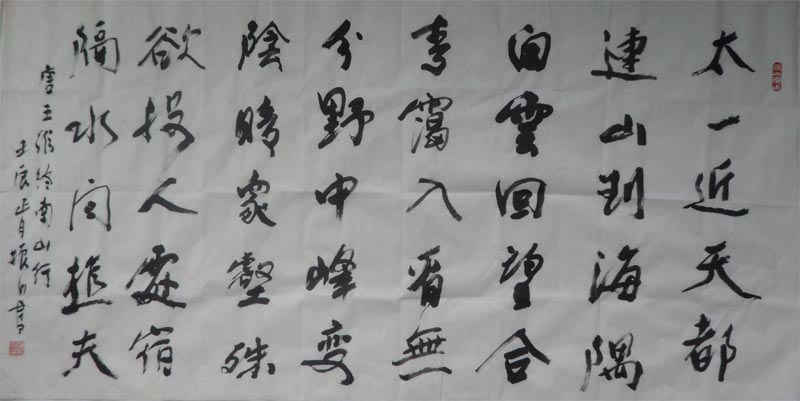 太一近天都
連山到海隅
白雲回望合
青靄入看無
分野中峰变
陰晴眾壑殊
欲投人處宿
隔水问樵夫
書王维终南山行
壬辰正月振書